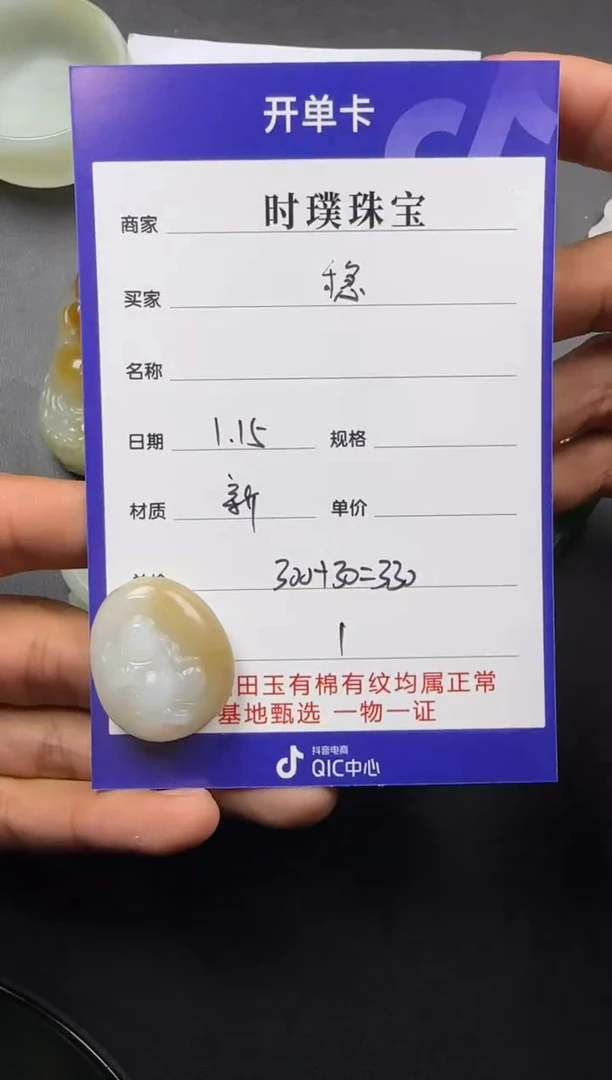 开单卡
商家 时璞珠宝
买家 稳
名称
日期 1.15 规格
材质 新 单价
300+30=330
1
田玉有棉有纹均属正常
基地甄选 一物一证
抖音电商
QIC中心